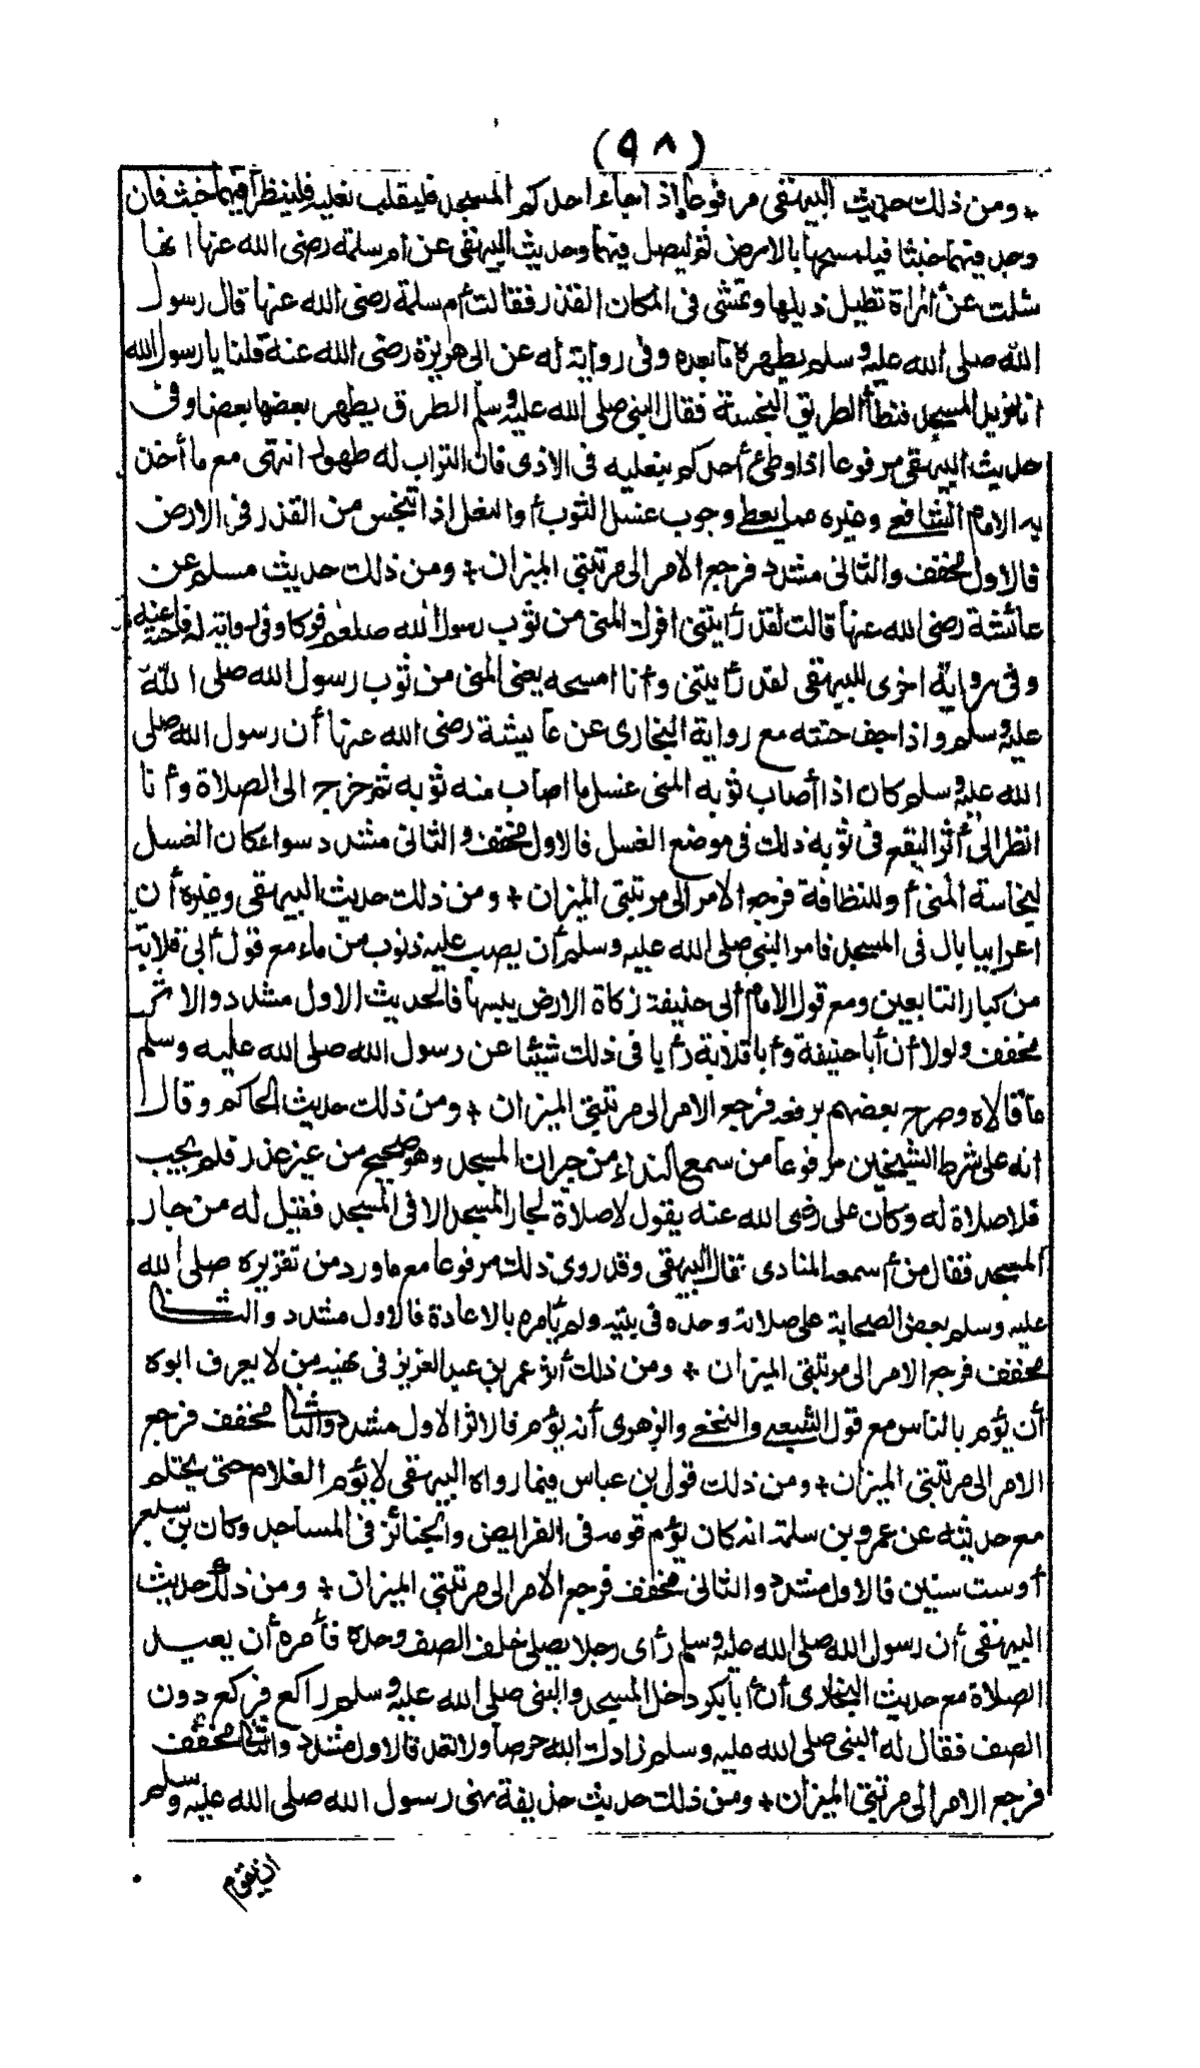 (٩٨)
* ومن ذلك حديث البيهقى مرفوعا إذا جاء احدكم المسجد فليقلب نعليه فلينظر أفيهما خبث فان
وجد فيهما خبثا فيلمسحها بالارض ثم ليصل فيهما وحديث البيهقى عن ام سلمة رضى الله عنها انها
سئلت عن أمرأة تطيل ذيلها وتمشى فى المكان القذر فقالت أم سلمة رضى الله عنها قال رسول
الله صلى الله عليه وسلم يطهره ما بعده وفى رواية له عن ابى هريرة رضى الله عنه قلنا يا رسول الله
انا نريد المسجد فنطأ الطريق النجسة فقال النبى صلى الله عليه وسلم الطرق يطهر بعضها بعضا وفى
حديث البيهقى مرفوعا اذا وطئ أحدكم بنعليه فى الاذى فان التراب له طهور انتهى مع ما أخذ
به الامام الشافعى وغيره وجوب غسل الثوب أو النعل اذا تنجس من القذر فى الارض
فالاول مخفف والثانى مشدد فرجع الامر الى مرتبتى الميزان * ومن ذلك حديث مسلم عن
عائشة رضى الله عنها قالت لقد رأيتنى افرك المنى من ثوب رسول الله صلعم فركا وفى رواية له فاحته عنه
وفى رواية اخرى للبيهقى لقد رأيتنى وأنا امسحه يعنى المنى من ثوب رسول الله صلى الله
عليه وسلم واذا جف حتته مع رواية البخارى عن عايشة رضى الله عنها أن رسول الله صلى
الله عليه وسلم كان اذا أصاب ثوبه المنى غسل ما اصاب منه ثوبه ثم خرج الى الصلاة وأنا
انظر الى أثر البقع فى ثوبه ذلك فى موضع الغسل فالاول مخفف والثانى مشدد سواء كان الغسل
لنجاسة المنى أو للنظافة فرجع الامر الى مرتبتى الميزان * ومن ذلك حديث البيهقى وغيره أن
اعرابيا بال فى المسجد فامر النبى صلى الله عليه وسلم أن يصب عليه ذنوب من ماء مع قول أبى قلابة
من كبار التابعين ومع قول الامام أبى حنيفة زكاة الارض يبسها فالحديث الاول مشدد والاثر
مخفف ولولا أن أبا حنيفة وأبا قلابة رأيا فى ذلك شيئا عن رسول الله صلى الله عليه وسلم
ما قالاه وصرح بعضهم برفعه فرجع الامر الى مرتبتى الميزان * ومن ذلك حديث الحاكم وقال
انه على شرط الشيخين مرفوعا من سمع النداء من جيران المسجد وهو صحيح من غير عذر فلم يجيب
فلا صلاة له وكان على رضى الله عنه يقول لا صلاة لجار المسجد الا فى المسجد فقيل له من جار
المسجد فقال من أسمعه المنادى قال البيهقى وقد روى ذلك مرفوعا مع ما ورد من تقريره صلى الله
عليه وسلم بعض الصحابة على صلاته وحده فى بيته ولم يأمره بالاعادة فالاول مشدد والثانى
مخفف فرجع الامر الى مرتبتى الميزان * ومن ذلك أثر عمر بن عبد العزيز فى نهيه من لا يعرف ابوه
أن يؤم بالناس مع قول الشعبى والنخعى والزهرى أنه يؤم فالاثر الاول مشدد والثانى مخفف فرجع
الامر الى مرتبتى الميزان * ومن ذلك قول بن عباس فيما رواه البيهقى لا يؤم الغلام حتى يحتلم
مع حديثه عن عمرو بن سلمة انه كان يؤم قومه فى الفرايض والجنائز فى المساجد وكان بن سبع
أو ست سنين فالاول مشدد والثانى مخفف فرجع الامر الى مرتبتى الميزان * ومن ذلك حديث
البيهقى أن رسول الله صلى الله عليه وسلم رأى رجلا يصلى خلف الصف وحده فأمره أن يعيد
الصلاة مع حديث البخارى أن أبا بكر دخل المسجد والنبى صلى الله عليه وسلم راكع فركع دون
الصف فقال له النبى صلى الله عليه وسلم زادك الله حرصا ولا تعد فالاول مشدد والثانى مخفف
فرجع الامر الى مرتبتى الميزان * ومن ذلك حديث حذيفة نهى رسول الله صلى الله عليه وسلم
ان يقوم